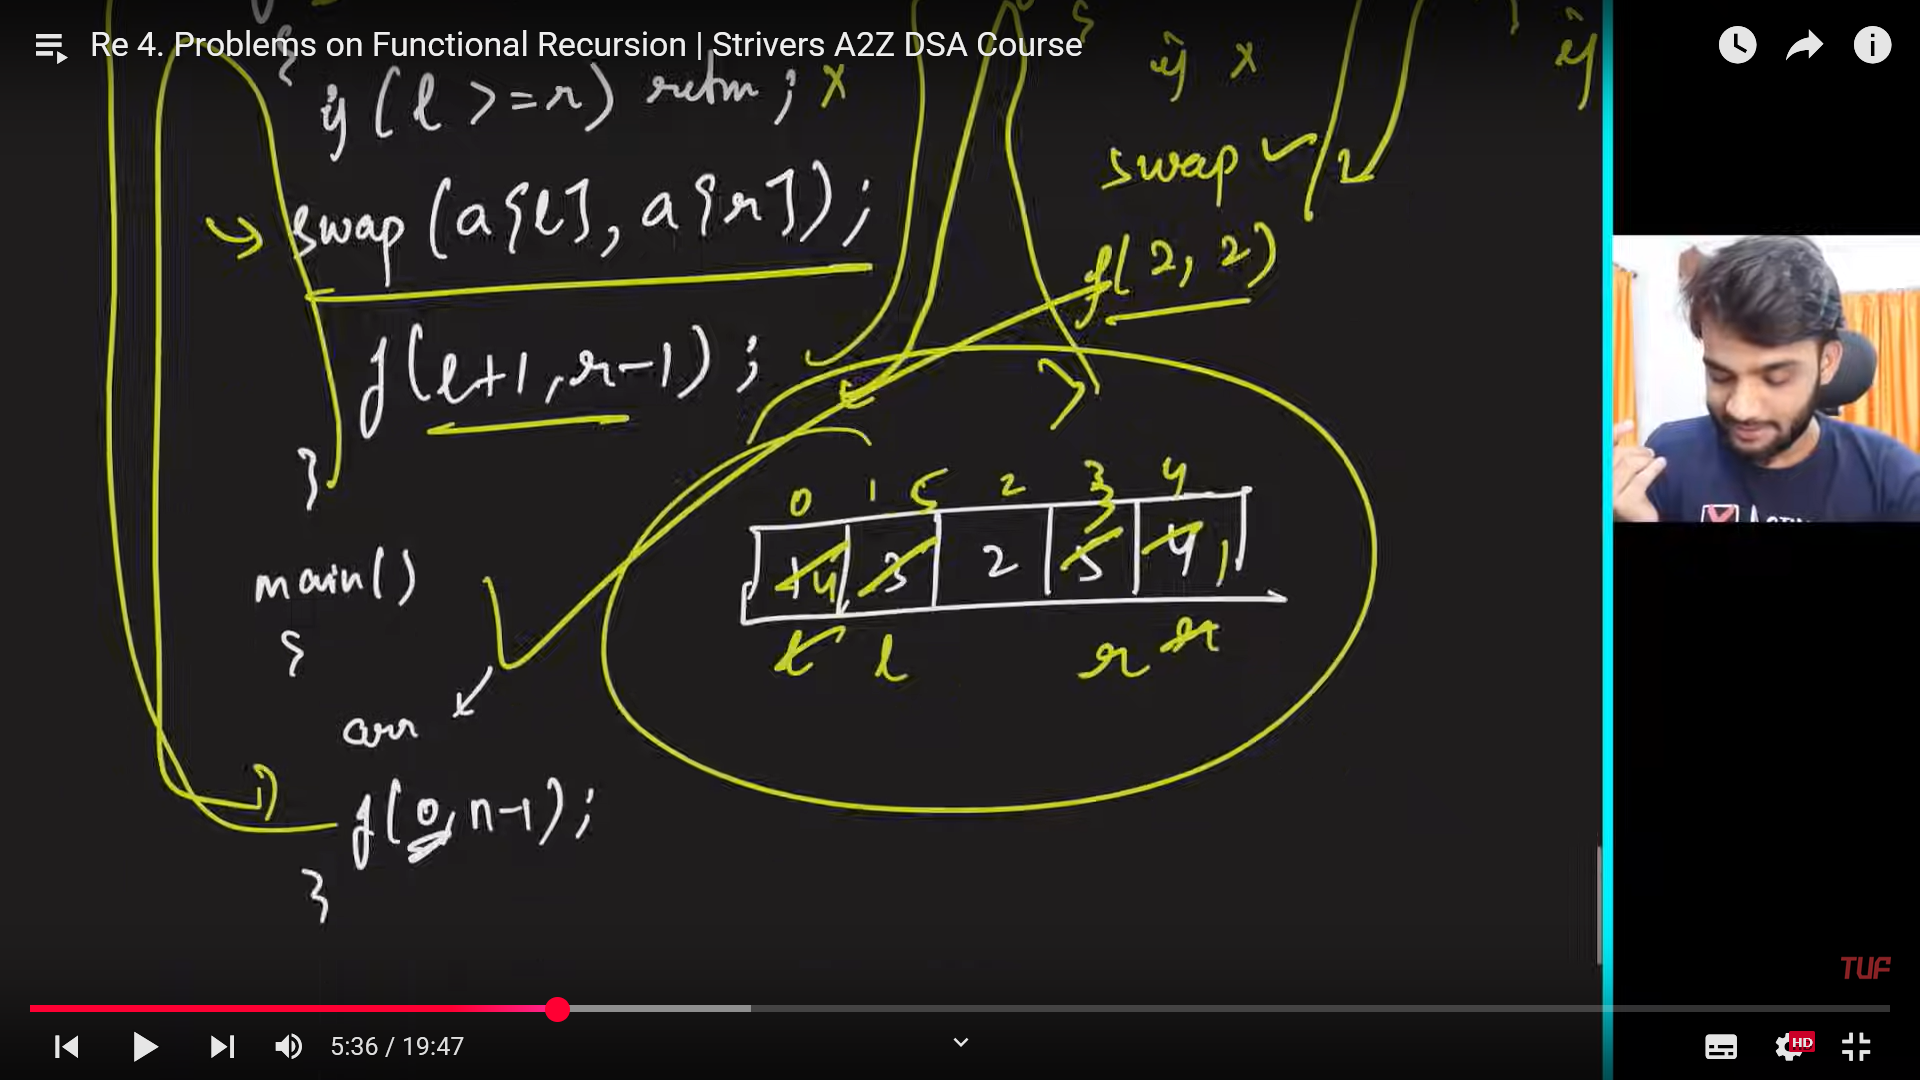 Re 4. Problems on Functional Recursion | Strivers A2Z DSA Course
{
if (l >= r) return; x
swap (a[l], a[r]);
f(l+1, r-1);
}
main()
{
arr
f(0, n-1);
}
if x
swap
f(2, 2)
if
0 1 5 2 3 4
3
1 4 3 2 5 4 1
l l r r
TUF
5:36 / 19:47
HD